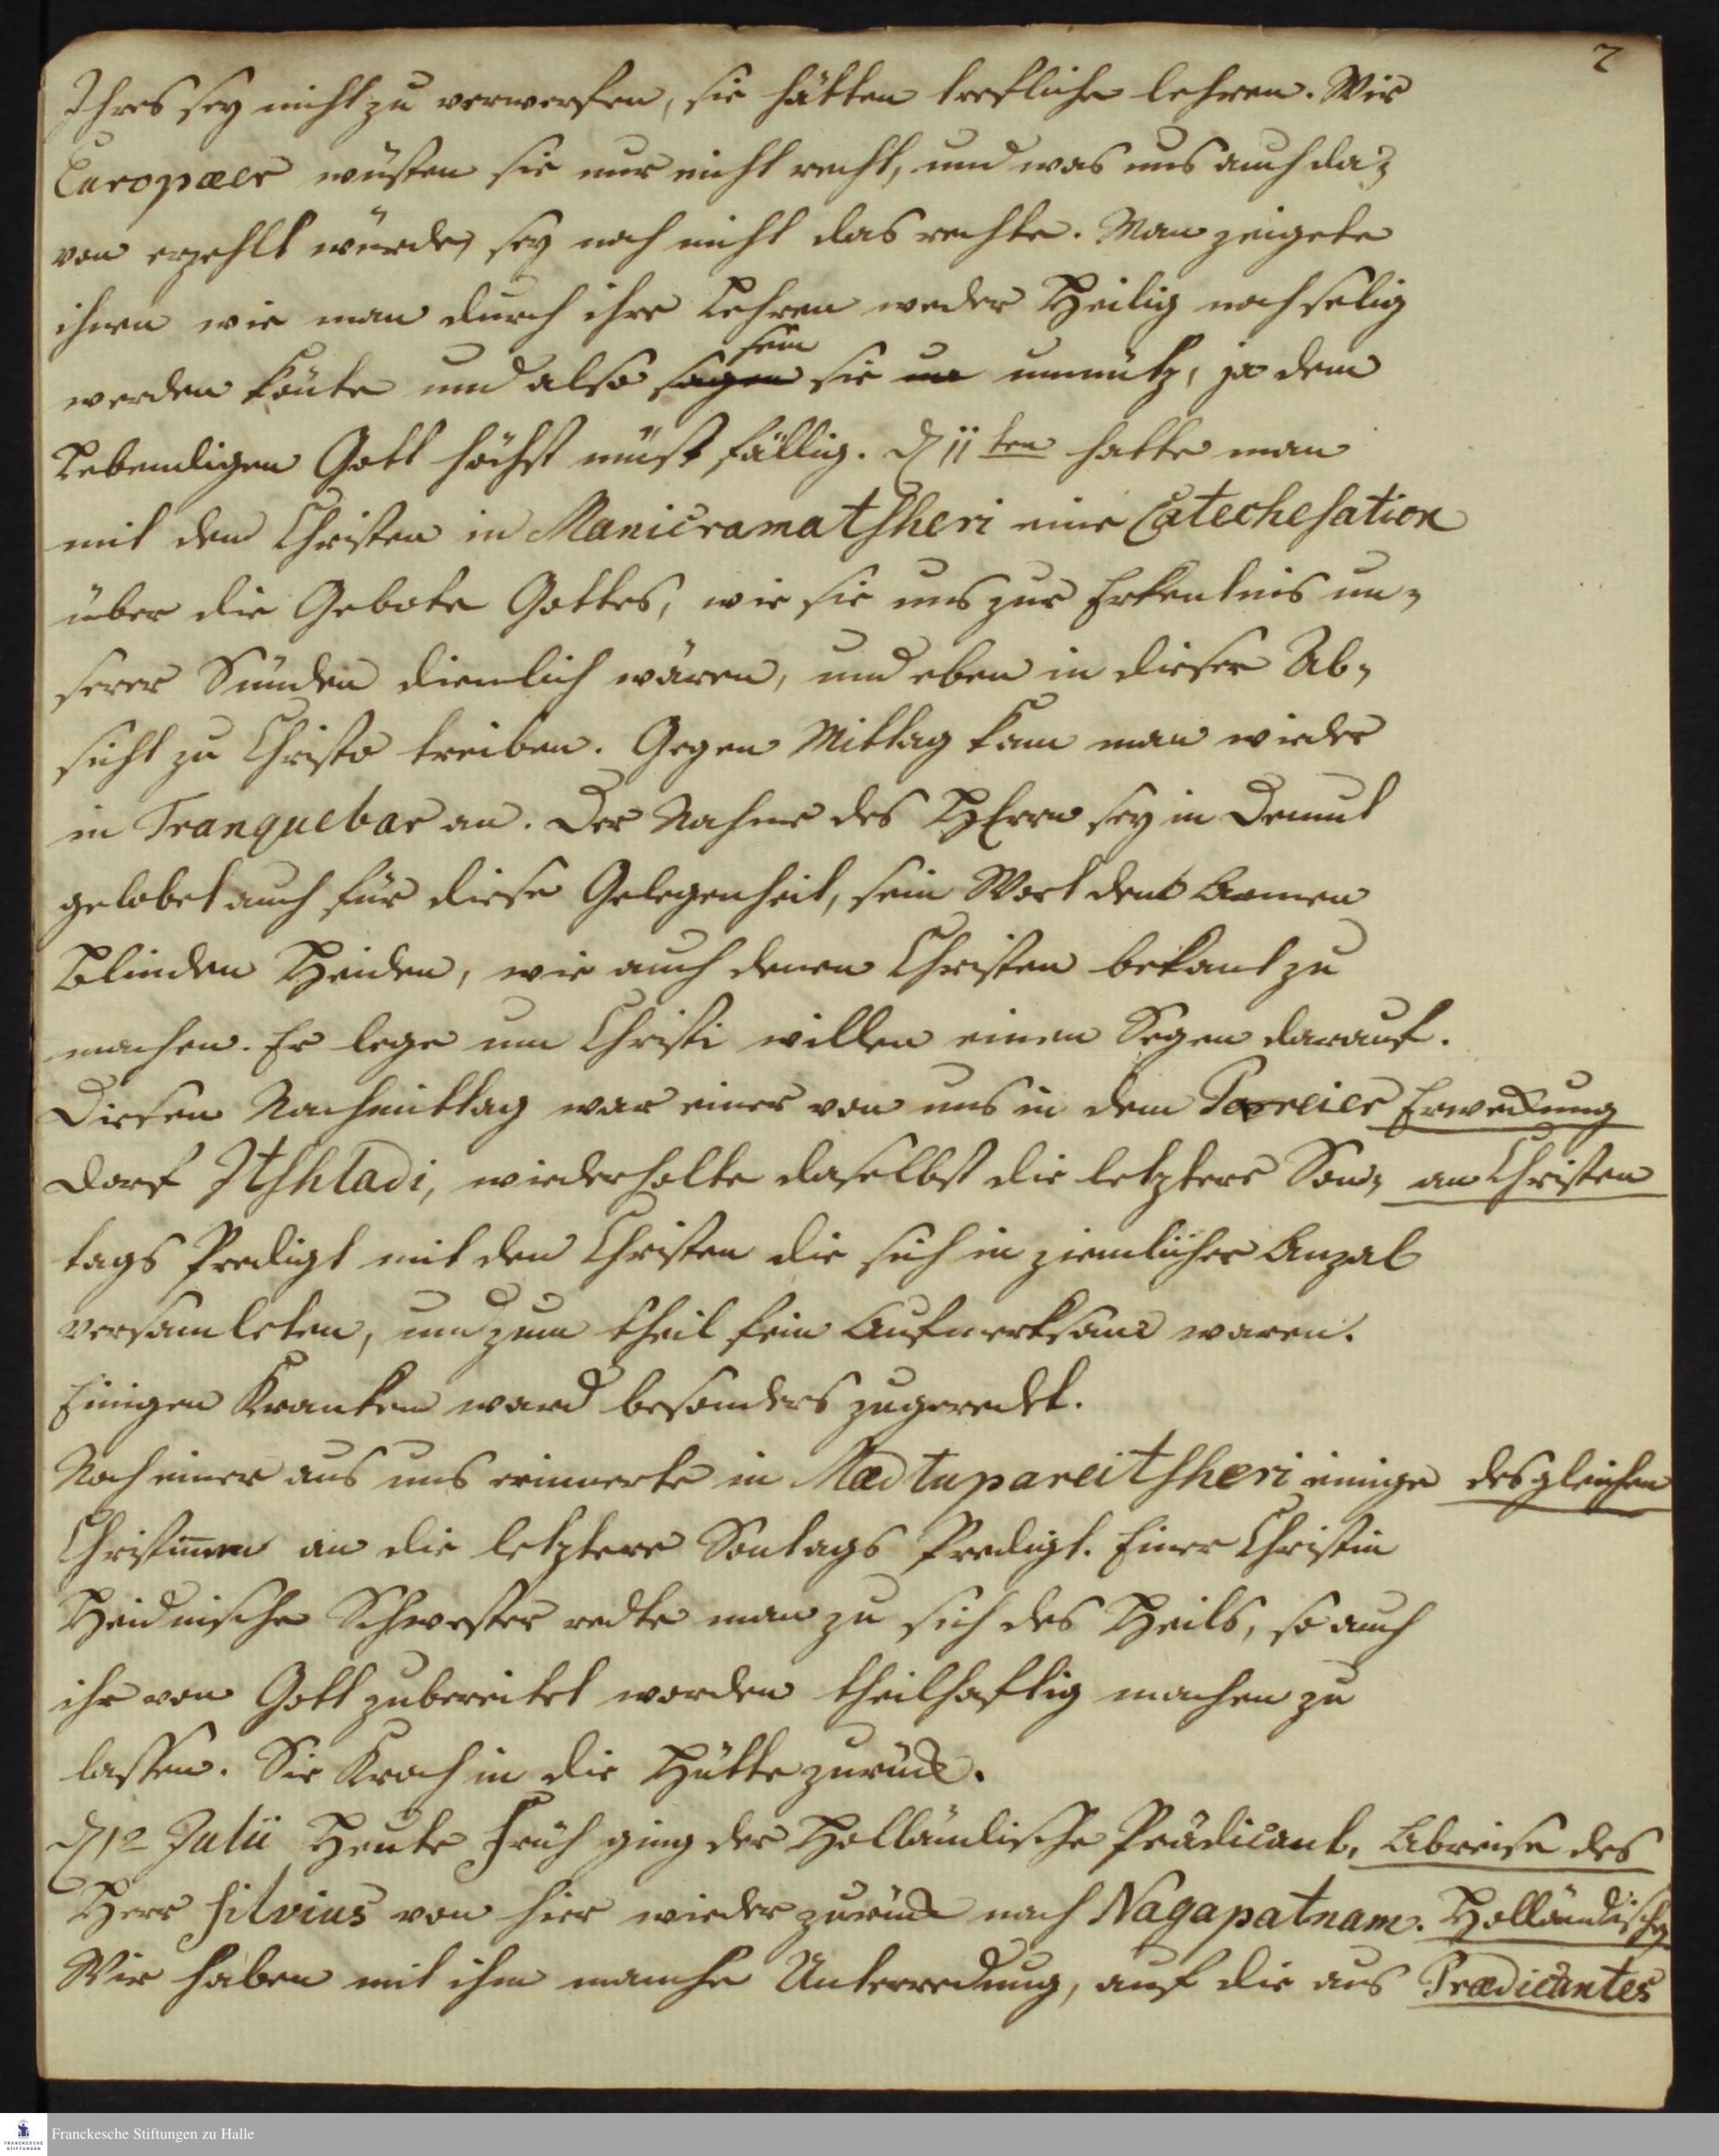 2
Ihres sey nicht zu verwerfen, sie hätten trefliche lehren. Wir
Europæer wüsten sie nur nicht recht, und was uns auch da-
von erzehlt würde, sey noch nicht das rechte. Man zeigete
ihnen wie man durch ihre Lehren weder Heilig noch selig
werden könte und also sagen sein sie un unnütz, ja dem
Lebendigen Gott höchst müsfällig. d 11 ten hatte man
mit den Christen in Manicramatsheri eine Catechesation
über die Gebote Gottes, wie sie uns zur Erkentnis un-
serer Sünden dienlich wären, und eben in dieser Ab-
sicht zu Christo treiben. Gegen Mittag kam man wieder
in Tranquebar an. Der Nahme des HErrn sey in Demut
gelobet auch für diese Gelegenheit, sein Wort den Armen
Blinden Heiden, wie auch denen Christen bekant zu
machen. Er lege um Christi willen einen Segen darauf.
Diesen Nachmittag war einer von uns in dem Pareier
Erweckung
Dorf Itshladi, wiederholte daselbst die letztere Son-
an Christen
tags Predigt mit den Christen die sich in ziemlicher Anzal
versamleten, und zum theil fein Aufmerksam waren.
Einigen Kranken ward besonders zugeredet.
Noch einer aus uns erinnerte in Mædtupareitsheri einige
desgleichen
Christinnen an die letztere Sontags Predigt. Einer Christin
Heidnische Schwester redte man zu sich des Heils, so auch
ihr von Gott zubereitet worden theilhaftig machen zu
lassen. Sie Kroch in die Hütte zurück.
d 12 Julii Heute Früh ging der Holländische Prädicant,
Abreise des
Herr Silvius von hier wieder zurück nach Nagapatnam.
Holländischen
Wir haben mit ihm manche Unterredung, auf die aus
Prædicantes
Franckesche Stiftungen zu Halle